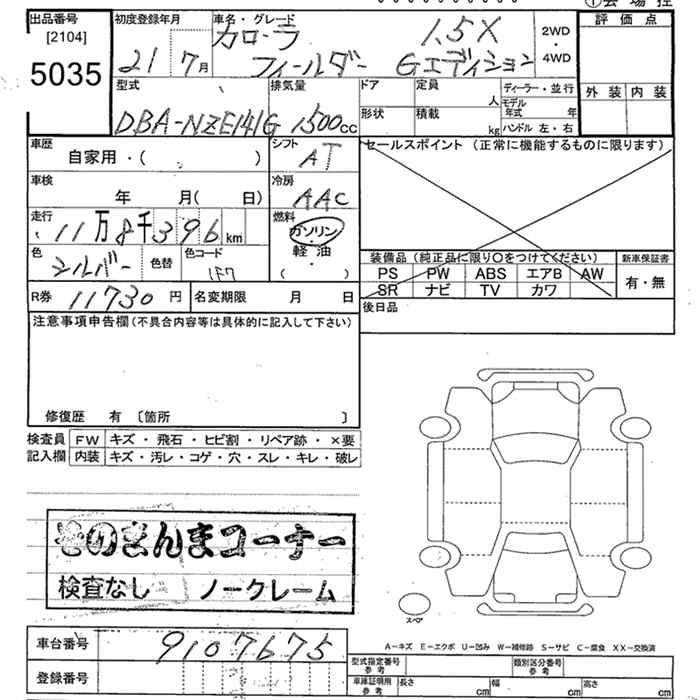 出品番号
[2104]
5035
初度登録年月
21 7月
車名・グレード
カローラ 1.5X
フィールダー Gエディション
2WD
・
4WD
評価点
外装 内装
型式
DBA-NZE141G
排気量
1500cc
ドア
形状
定員
人
積載
kg
ディーラー・並行
モデル年式 年
ハンドル 左・右
車歴
自家用・( )
シフト
AT
セールスポイント (正常に機能するものに限ります)
車検
年 月( 日)
冷房
AAC
走行
11万8千396km
燃料
ガソリン
・
軽油
( )
色
シルバー
色替
色コード
1F7
装備品 (純正品に限り○をつけてください)
PS PW ABS エアB AW
SR ナビ TV カワ
新車保証書
有・無
R券 11730円
名変期限 月 日
後日品
注意事項申告欄(不具合内容等は具体的に記入して下さい)
修復歴 有 〔箇所 〕
検査員 FW キズ・飛石・ヒビ割・リペア跡・×要
記入欄 内装 キズ・汚レ・コゲ・穴・スレ・キレ・破レ
そのまんまコーナー
検査なし ノークレーム
スペア
A-キズ E-エクボ U-凹み W-補修跡 S-サビ C-腐食 XX-交換済
車台番号 9107675
登録番号
型式指定番号
参考
類別区分番号
参考
車庫証明用
参考
長さ cm 幅 cm 高さ cm